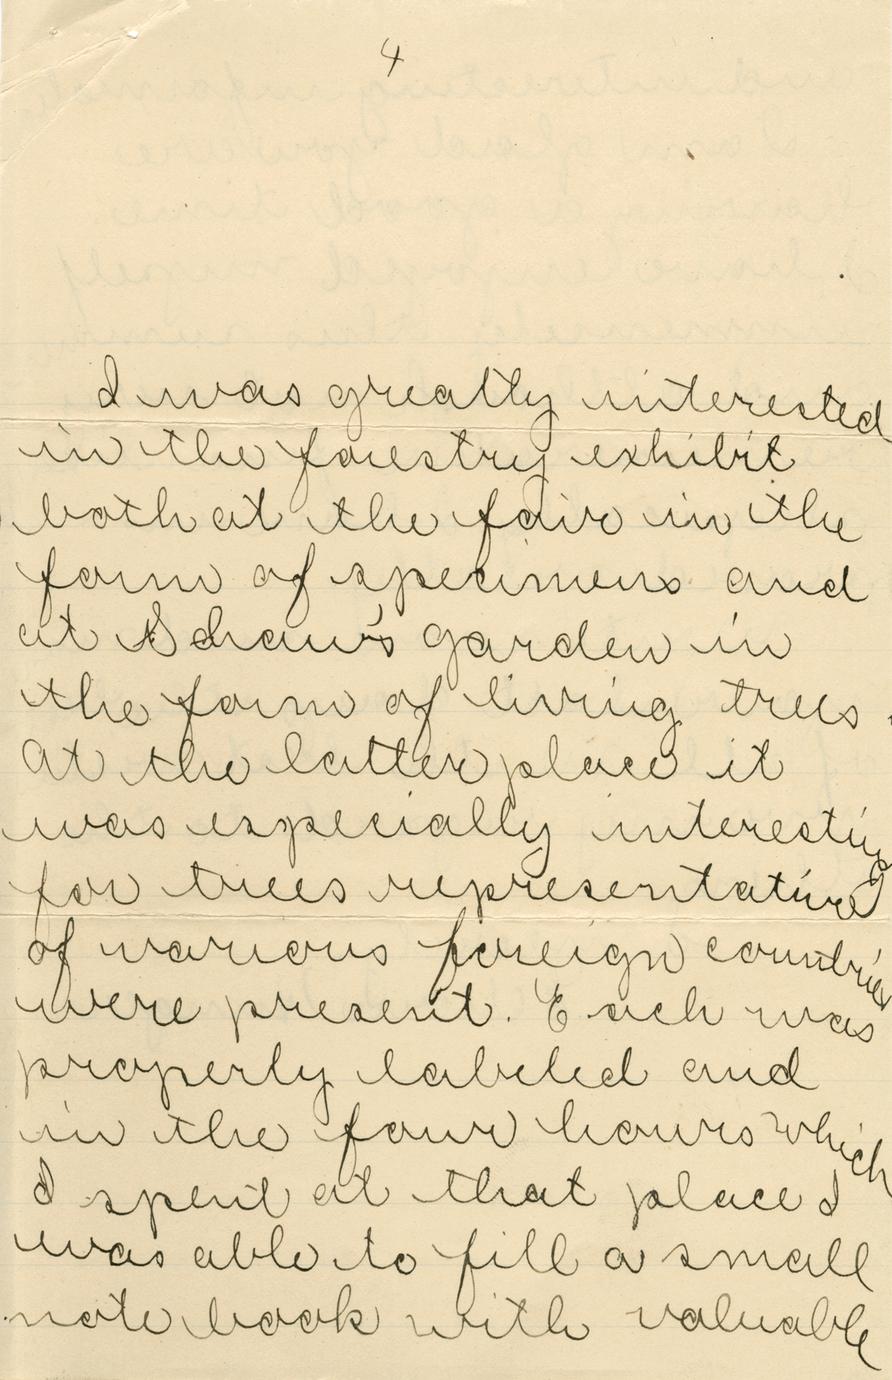 4
I was greatly interested
in the forestry exhibit
both at the fair in the
form of specimens and
at Schaw's garden in
the form of living trees.
At the latter place it
was especially interesting
for trees representative
of various foreign countries
were present. Each was
properly labeled and
in the four hours which
I spent at that place I
was able to fill a small
note book with valuable